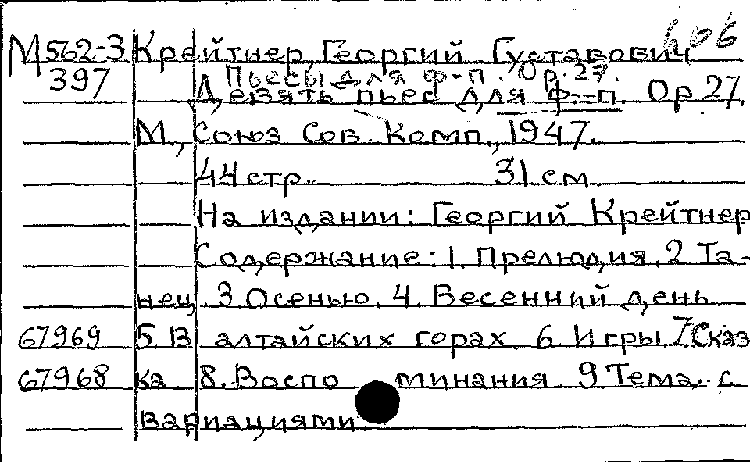 606
М562-3 Крейтнер, Георгий Густавович
397 Пьесы для ф-п. Op.27.
Девять пьес для ф-п. Op 27.
М., Союз Сов. Комп., 1947.
44 стр. 31 см
На издании: Георгий Крейтнер
Содержание: 1. Прелюдия. 2 Та-
нец 3 Осенью. 4. Весенний день
67969 5. В алтайских горах 6. Игры. 7. Сказ
67968 ка 8. Воспоминания 9 Тема с
вариациями